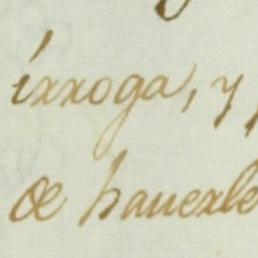 ixxoga, y
de hauerle